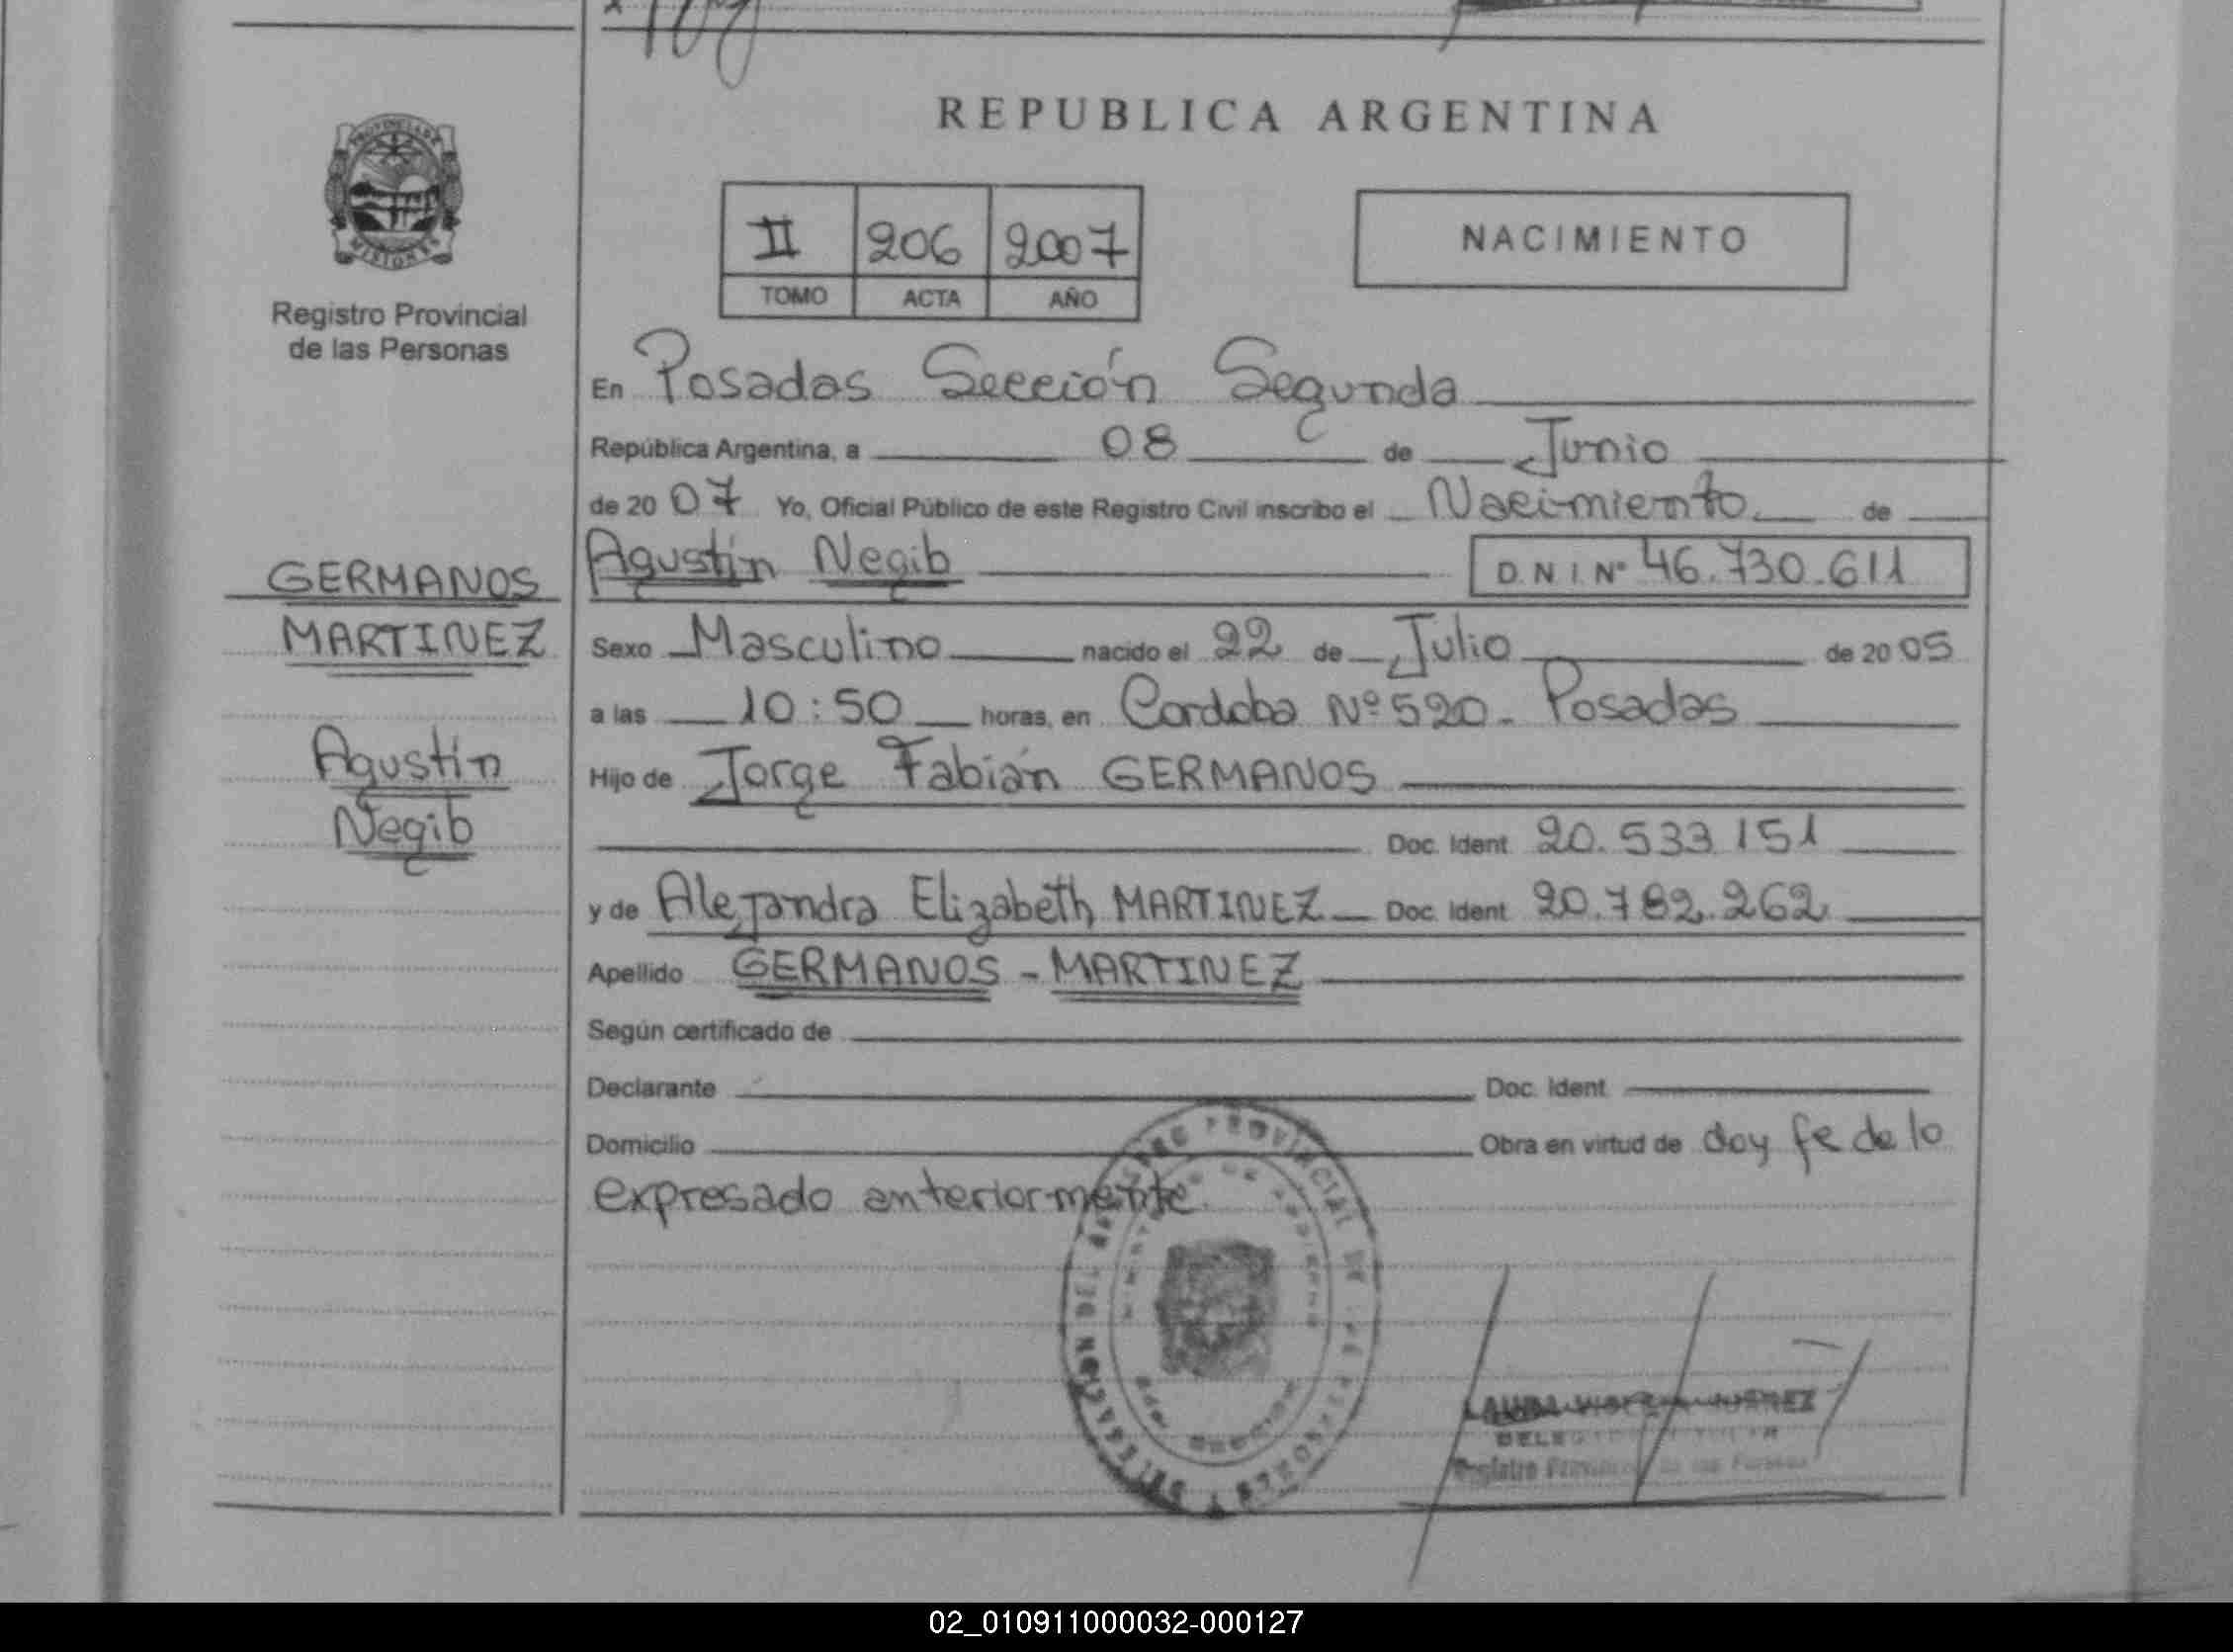 REPUBLICA ARGENTINA
PROVINCIA DE
MISIONES
Registro Provincial
de las Personas
II 206 2007
TOMO ACTA AÑO
NACIMIENTO
En Posadas Sección Segunda
República Argentina, a 08 de Junio
de 20 07 Yo, Oficial Público de este Registro Civil inscribo el Nacimiento de
Agustín Negib D.N.I. Nº 46.730.611
GERMANOS
MARTINEZ
Agustín
Negib
Sexo Masculino nacido el 22 de Julio de 20 05
a las 10:50 horas, en Cordoba Nº 520 - Posadas
Hijo de Jorge Fabián GERMANOS
Doc. Ident. 20.533.151
y de Alejandra Elizabeth MARTINEZ Doc. Ident. 20.782.262
Apellido GERMANOS - MARTINEZ
Según certificado de
Declarante Doc. Ident.
Domicilio Obra en virtud de doy fe de lo
expresado anteriormente.
PROVINCIAL DE
Registro
02_010911000032-000127